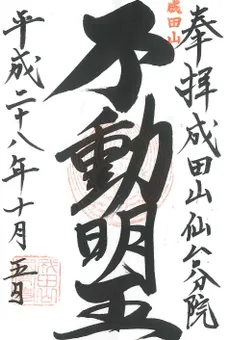 奉拝 成田山仙台分院
成田山
不動明王
平成二十八年十月五日